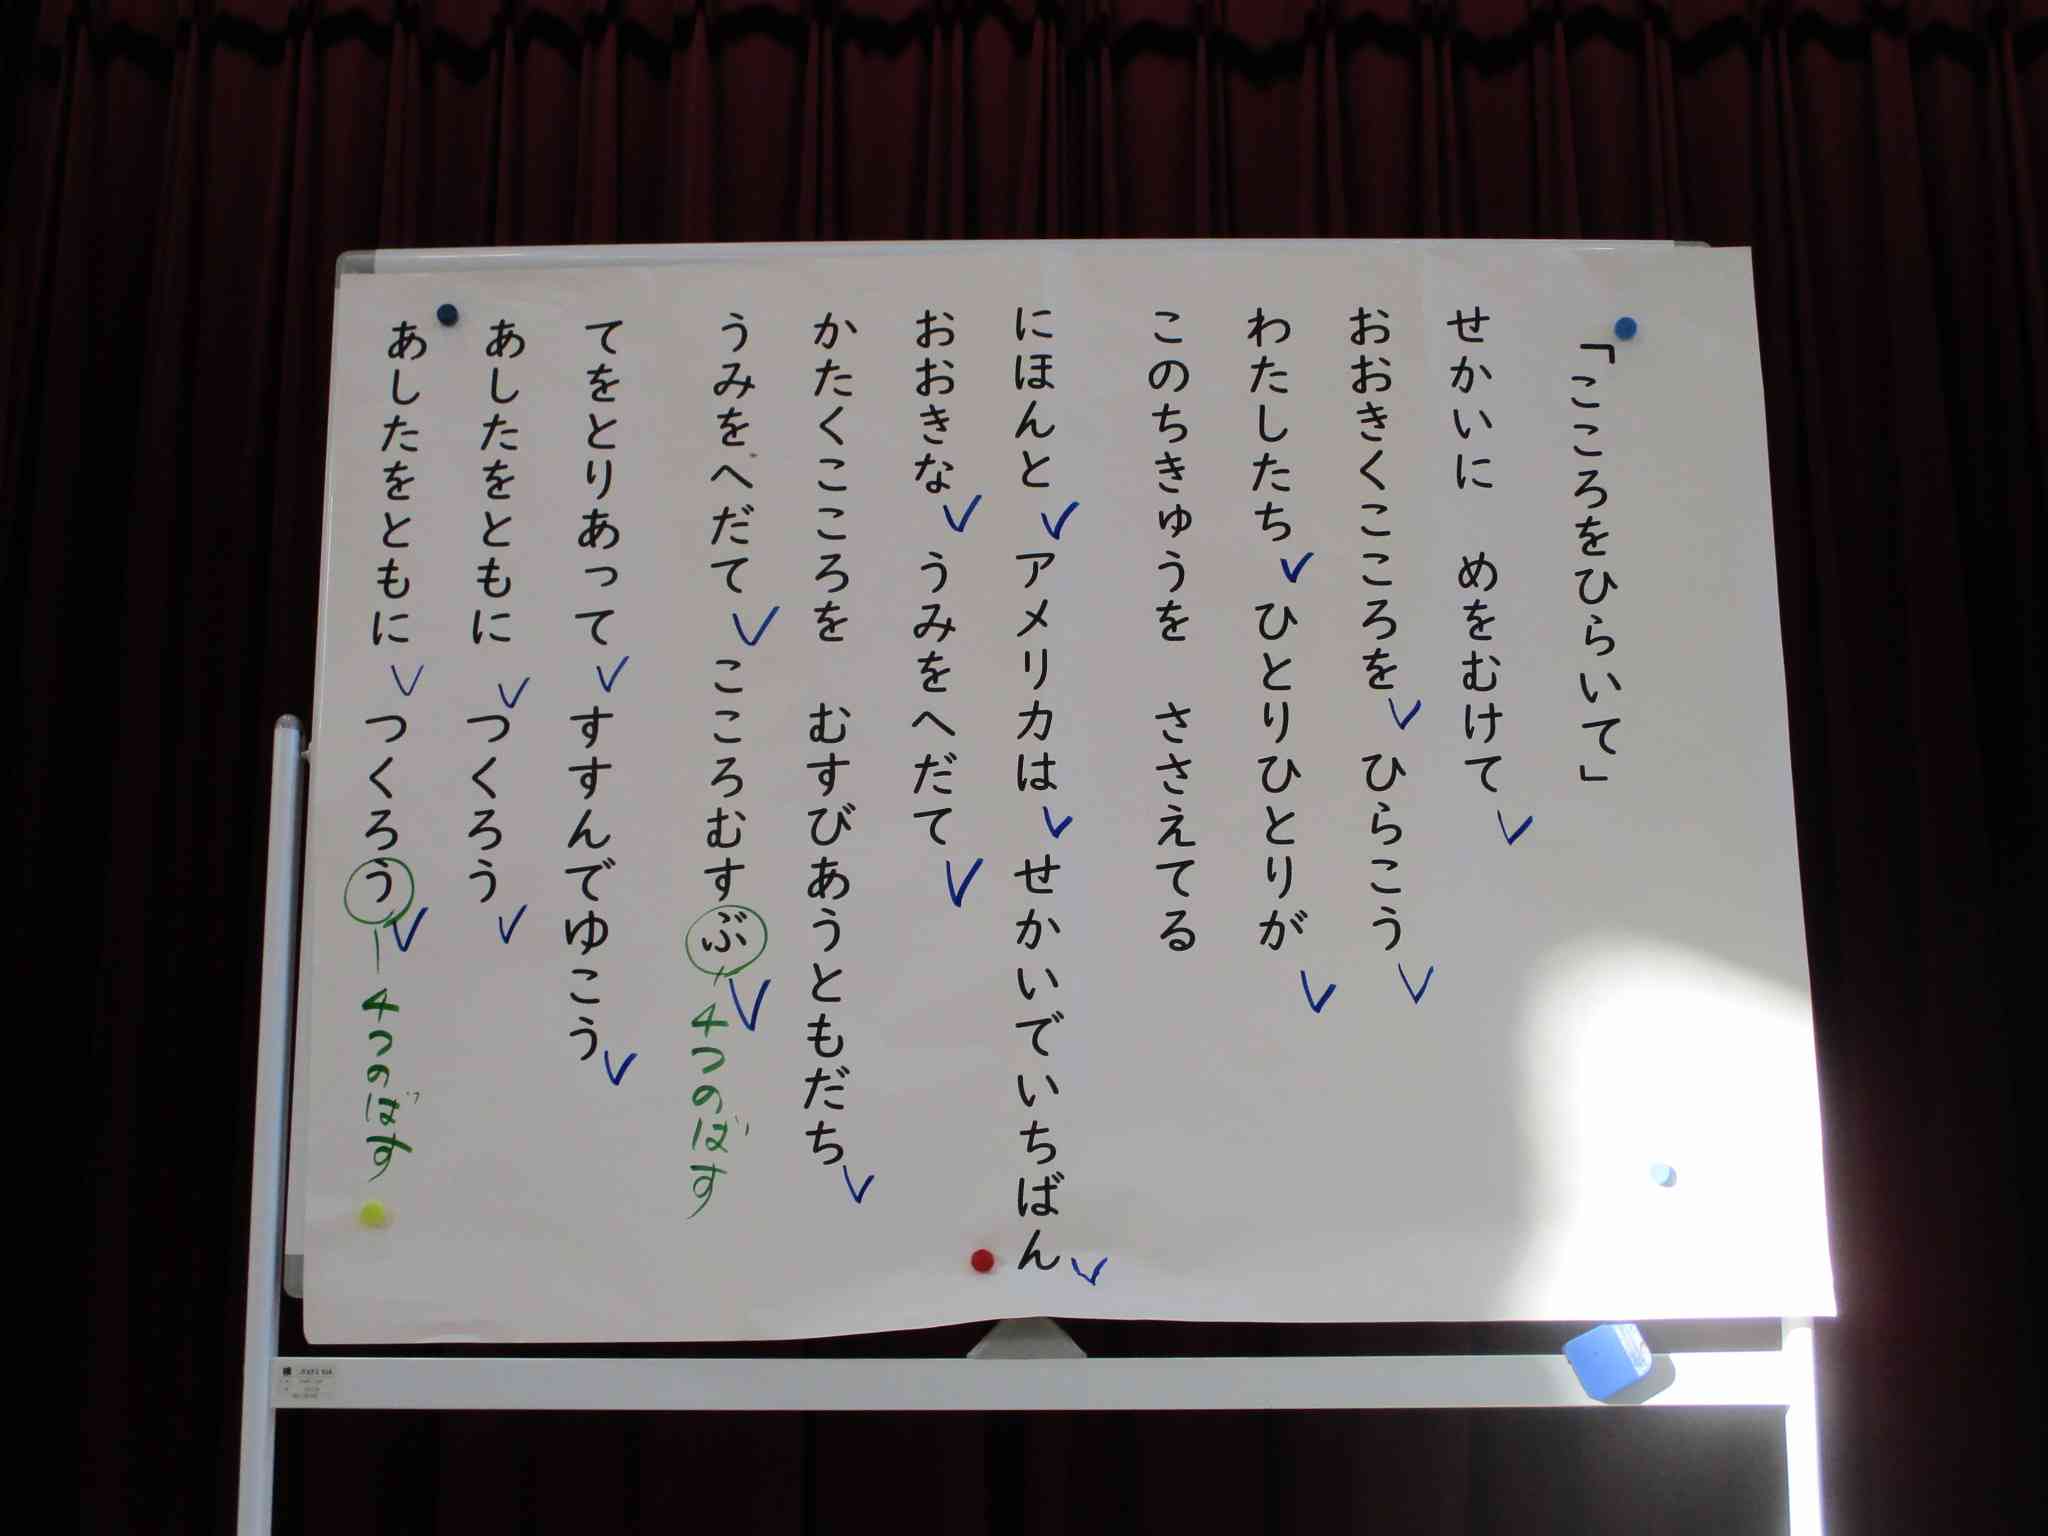 「こころをひらいて」
せかいに　めをむけて
おおきくこころを　ひらこう
わたしたち　ひとりひとりが
このちきゅうを　ささえてる
にほんと　アメリカは　せかいでいちばん
おおきな　うみをへだて
かたくこころを　むすびあうともだち
うみをへだて　こころむすぶ
4つのばす
てをとりあって　すすんでゆこう
あしたをともに　つくろう
あしたをともに　つくろう
4つのばす